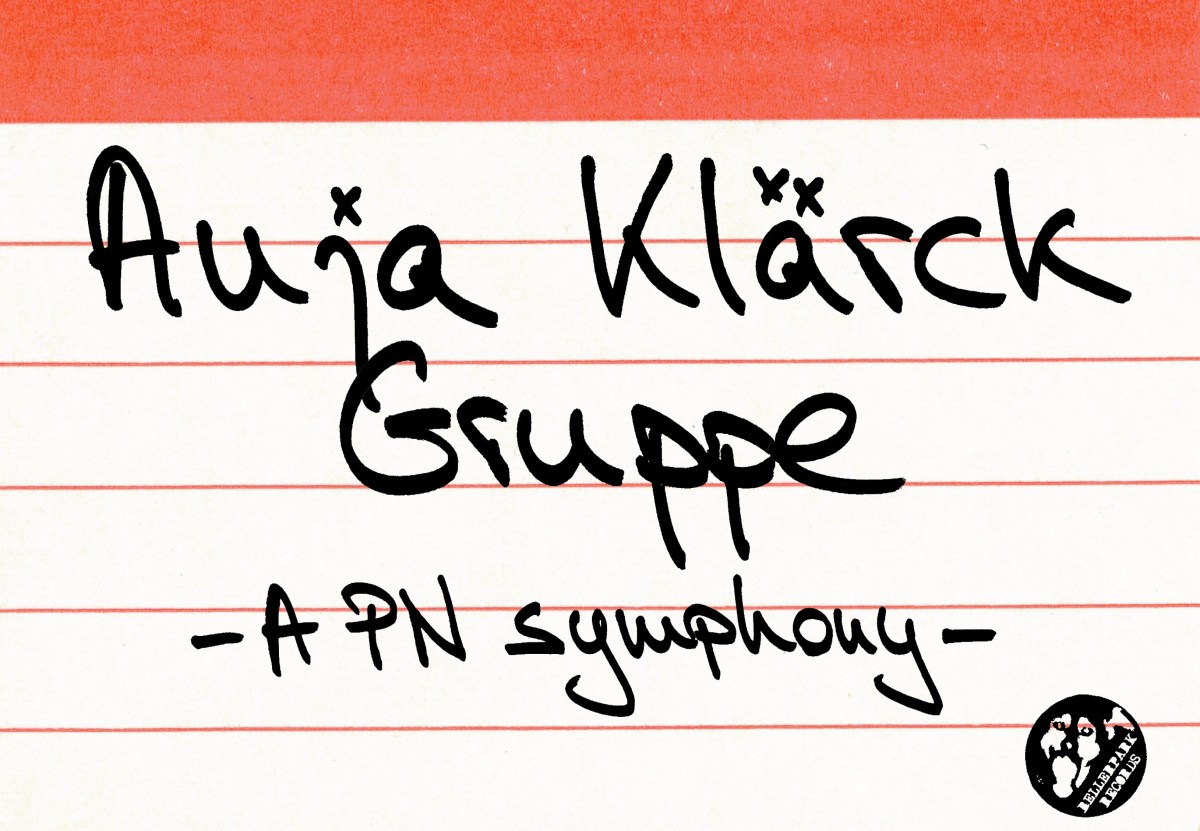 Anja Klärck
Gruppe
- A PN symphony -
BELLERPARK
RECORDS